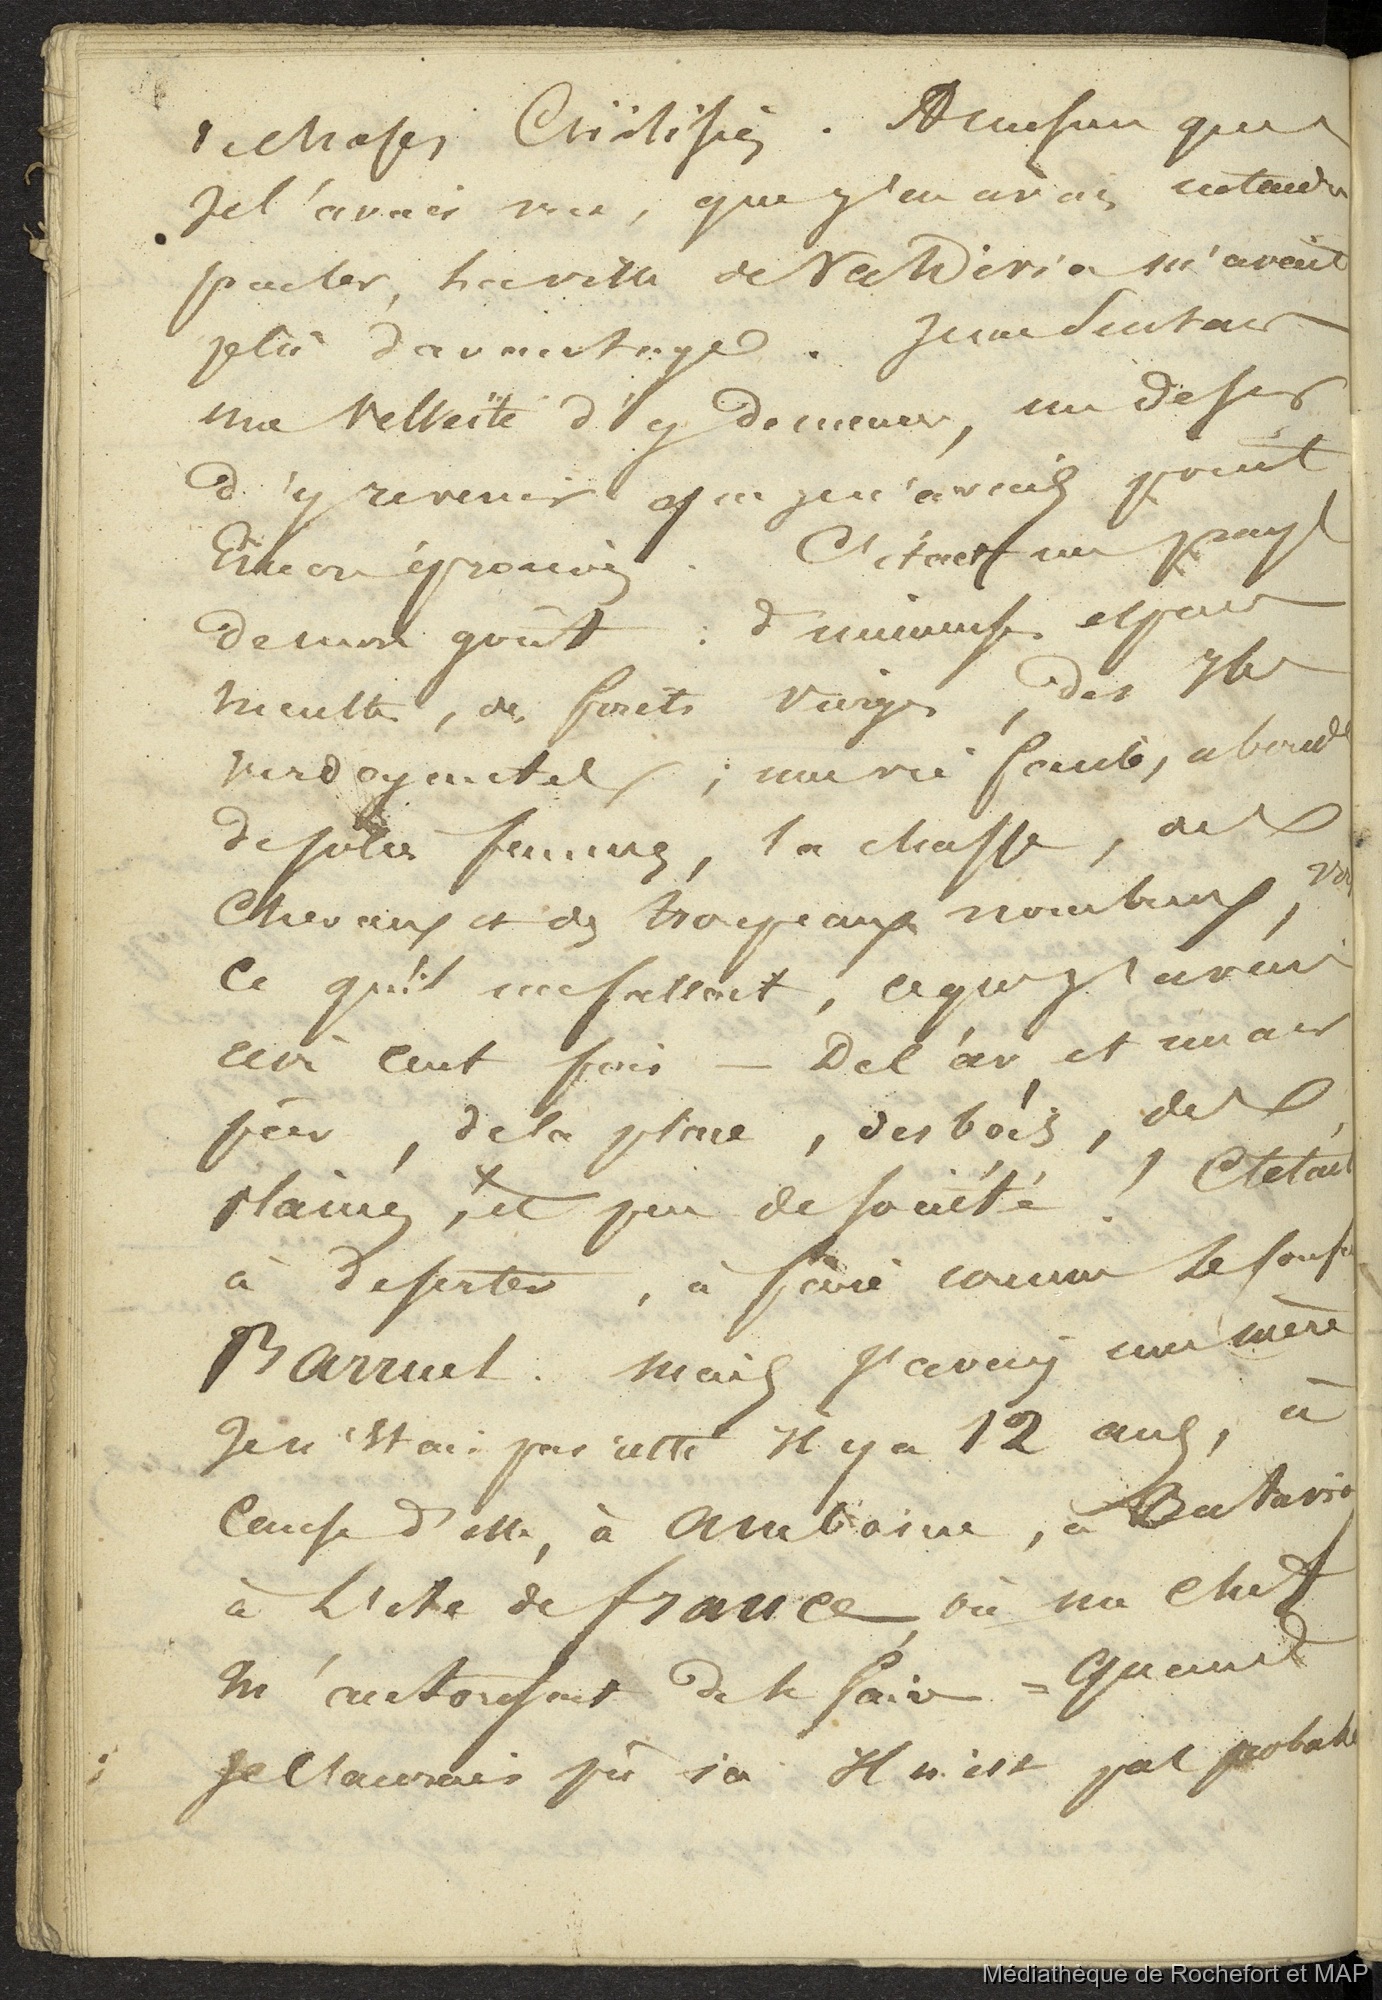 de choses Civilisées. A mesure que
Je l'avais vu, que j'en avais entendu
parler, la ville de Valdivia m'avait
plû davantage. Je me Sentais
une Velleïté d'y demeurer, un desir
d'y revenir que je n'avais point
Encor éprouvés. C'était un pays
de mon goût : d'immenses espaces
incultes, des forêts Vierges, des Iles
verdoyantes ; une vie facile, abond
de jolies femmes, la chasse, des
Chevaux et des troupeaux nombreux,
Ce qu'il me fallait, ce que j'avais
cent fois — De l'air et un air
pur, de la place, des bois, des
plaines, et peu de société ! C'etait
à deserter, à faire comme le
Barruel. mais j'avais une mère
Je n'Etais pas resté Il y a 12 ans, à
Cause d'elle, à Amboine, à Batavia
à L'ile de france, où un chef
m'autorisait de le faire = Quand
Je l'aurais pû ici Il n'est pas probable
Médiathèque de Rochefort et MAP